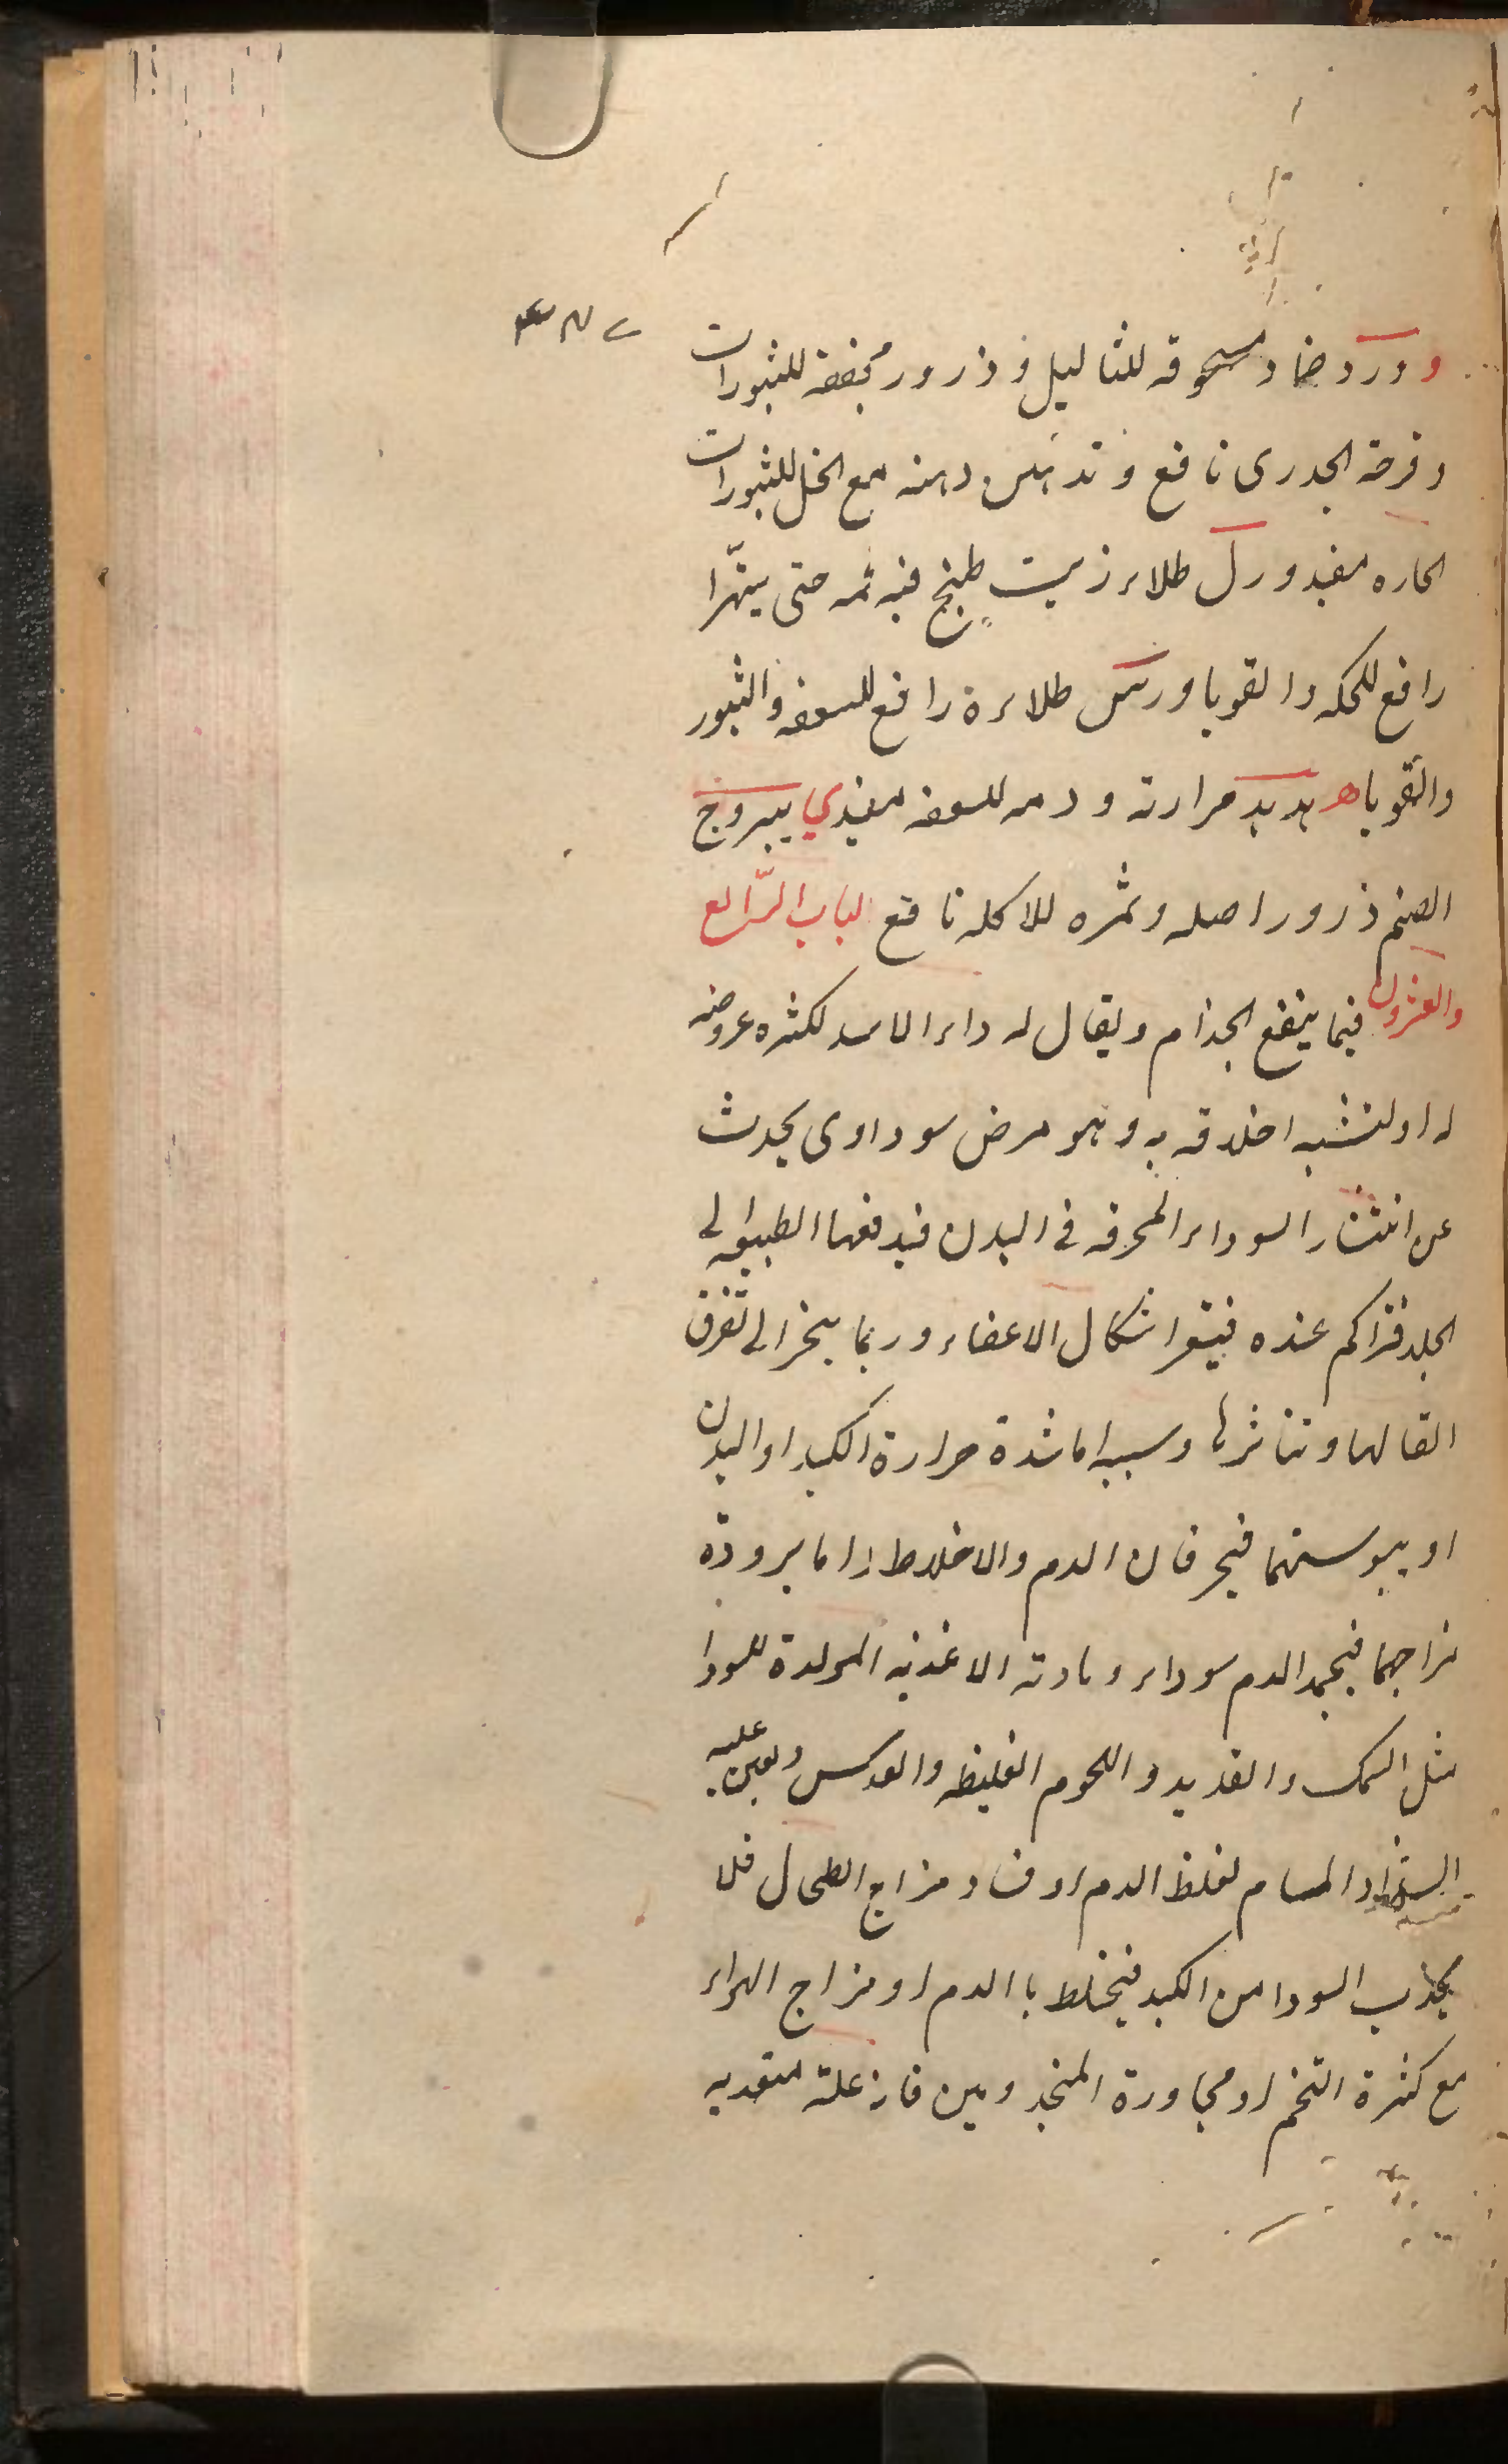 و ورد ضماد مسحوقه للثاليل و ذرور مجففه للبثورات
وقرحة الجدرى نافع و تدهين دهنه مع الخل للبثورات
الحاره مفيد ورل طلاء زيت طبخ فيه ثمه حتى يتهرّا
رافع للحكه والقوبا ورس طلاءه رافع للسعفه والبثور
والقوبا هدهد مرارته و دمه للسعفه مفيد ي يبروج
الصنم ذرور اصله وثمره للاكله نافع الباب الرّابع
والعشرون فيما ينفع الجذام ويقال له داء الاسد لكثره عروضه
له او لتشبه اخلاقه به وهو مرض سوداوى يحدث
عن انتشار السوداء المحرقه فى البدن فيدفعها الطبيعه الى
الجلد فتراكم عنده فيتغير اشكال الاعضاء وربما ينجر الى تفرق
اتصالها وتناثرها وسببه اما شدة حرارة الكبد او البدن
او يبوستهما فيحرقان الدم والاخلاط واما برودة
مزاجهما فيجمد الدم سوداء ومادته الاغذيه المولدة للسودا
مثل السمك والقديد و اللحوم الغليظه والعدس ويعين عليه
انسداد المسام لغلظ الدم او فساد مزاج الطحال فلا
يجذب السودا من الكبد فيختلط با الدم او مزاج الهواء
مع كثرة التخم او مجاورة المجذومين فانه علة متعديه